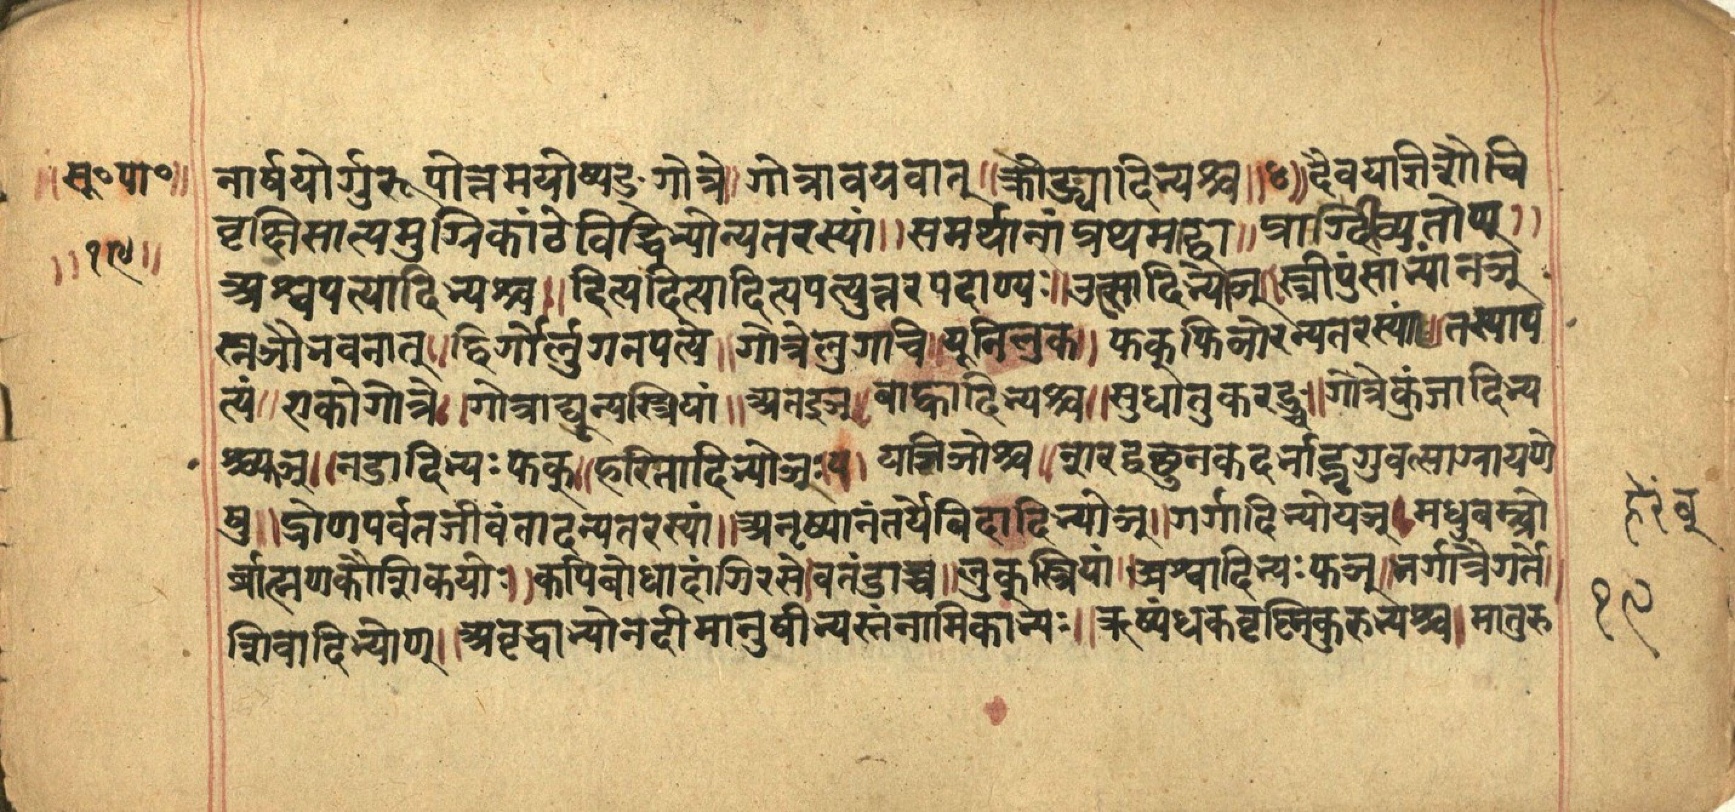 ॥सू०पा०॥
॥१९॥
नार्षयोर्गुरूपोत्तमयोष्यङ्गोत्रे॥गोत्रावयवात्॥क्रौड्यादिभ्यश्च॥४॥दैवयज्ञिशौचि
वृक्षिसात्यमुग्रिकांठेविद्धिभ्योन्यतरस्यां॥समर्थानांप्रथमाद्वा॥प्राग्दीव्यतोण्॥
अश्वपत्यादिभ्यश्च॥दित्यदित्यादित्यपत्युत्तरपदाण्यः॥उत्सादिभ्योञ्॥स्त्रीपुंसाभ्यांनञ्
स्नञौभवनात्॥द्विगोर्लुगनपत्ये॥गोत्रेलुगचि॥यूनिलुक्॥फक्फिञोरन्यतरस्यां॥तस्याप
त्यं॥एकोगोत्रे॥गोत्राद्यून्यस्त्रियां॥अतइञ्॥बाह्वादिभ्यश्च॥सुधातुकरङ्च॥गोत्रेकुंजादिभ्य
श्च्फञ्॥नडादिभ्यःफक्॥हरितादिभ्योञः॥यञिञोश्च॥शरद्वच्छुनकदर्भाद्भृगुवत्साग्रायणे
षु॥द्रोणपर्वतजीवंतादन्यतरस्यां॥अनृष्यानंतर्येबिदादिभ्योञ्॥गर्गादिभ्योयञ्॥मधुबभ्र्वो
र्ब्राह्मणकौशिकयोः॥कपिबोधादांगिरसे॥वतंडाच्च॥लुक्स्त्रियां॥अश्वादिभ्यःफञ्॥भर्गात्त्रैगर्ते॥
शिवादिभ्योण्॥अवृद्धाभ्योनदीमानुषीभ्यस्तंनामिकाभ्यः॥ऋष्यंधकवृष्णिकुरुभ्यश्च॥मातुरु
हेरंबू
१९